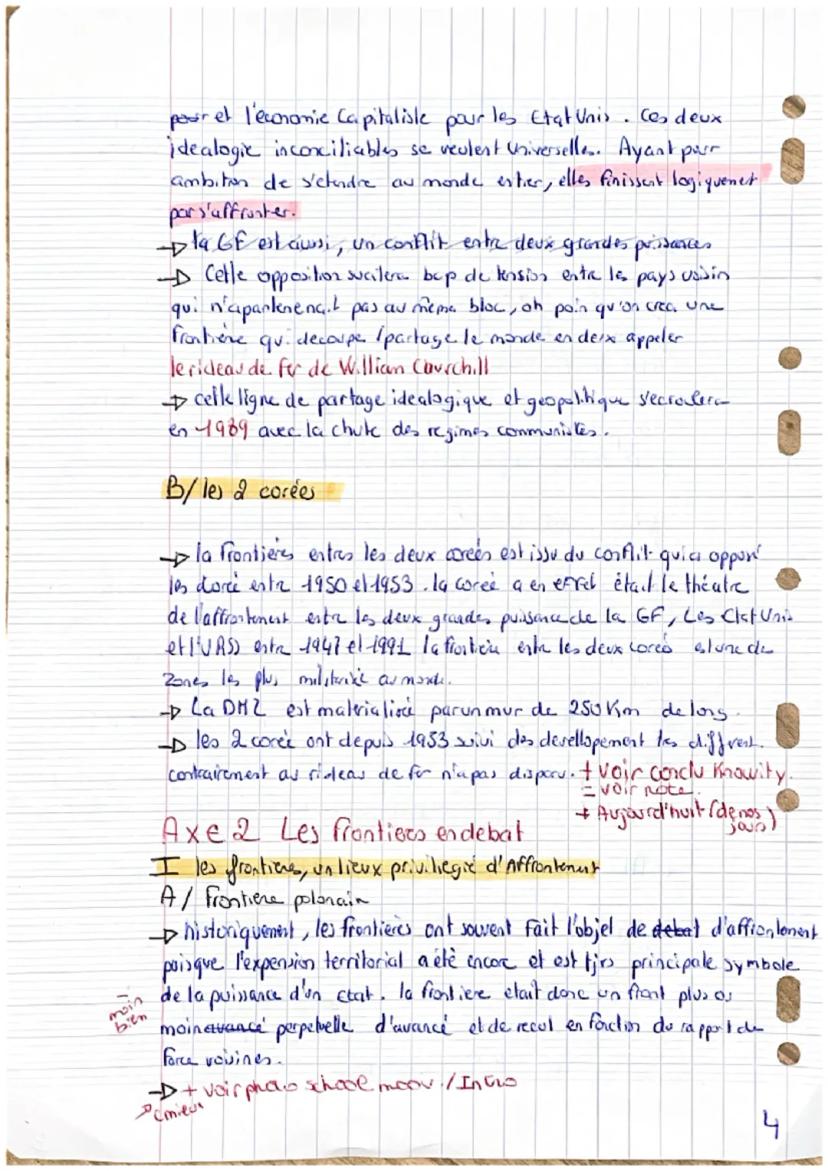 et l'économie Capitaliste pour les Etat Unis. Ces deux
idealogie inconciliables se veulent Universelles. Ayant pour
ambition de s'etendre au monde entier, elles finissent logiquement
par s'affronter.
→ la GF est aussi, un conflit entre deux grandes puissances
→ Cette opposition suscitera bcp de tension entre les pays voisin
qui n'apartenenait pas au même bloc, oh poin qu'on crea une
frontière qui decoupe / partage le monde en deux appeler
le rideau de fer de William Courchill
→ cette ligne de partage idealogique et geopolitique s'ecroulera
en 1989 avec la chute des regimes communistes.
B/ les 2 corées
→ la frontières entres les deux coreés est issu du conflit qui a opposé
les corée entre 1950 et 1953. la coreé a en effet était le théatre
de l'affrontement entre les deux grandes puissance de la GF, Les Etat Unis
et l'URSS entre 1947 et 1991 la frontiere entre les deux coreés est une de
zones les plus militarisé au monde.
→ La DMZ est materialisée par un mur de 250 Km de long.
→ les 2 corée ont depuis 1953 suivi des devellopement très different.
contrairement au rideau de fer n'a pas disparu. + voir conclu Knowity.
= voir note.
+ Aujourd'huit (de nos jours)
Axe 2 Les frontieres en debat
I les frontieres, un lieux priviliegié d'Affrontement
A/ Frontière polonain
→ historiquement, les frontières ont souvent fait l'objet de debat d'affrontement
puisque l'expension territorial a étè encore et est tjrs principale symbole
de la puissance d'un etat. la frontiere était donc un front plus ou
moin avancé perpetuelle d'avancé et de recul en fonction du rapport de
force voisines.
moin bien
→ + voir photo school moov / Intro
c mieux
4